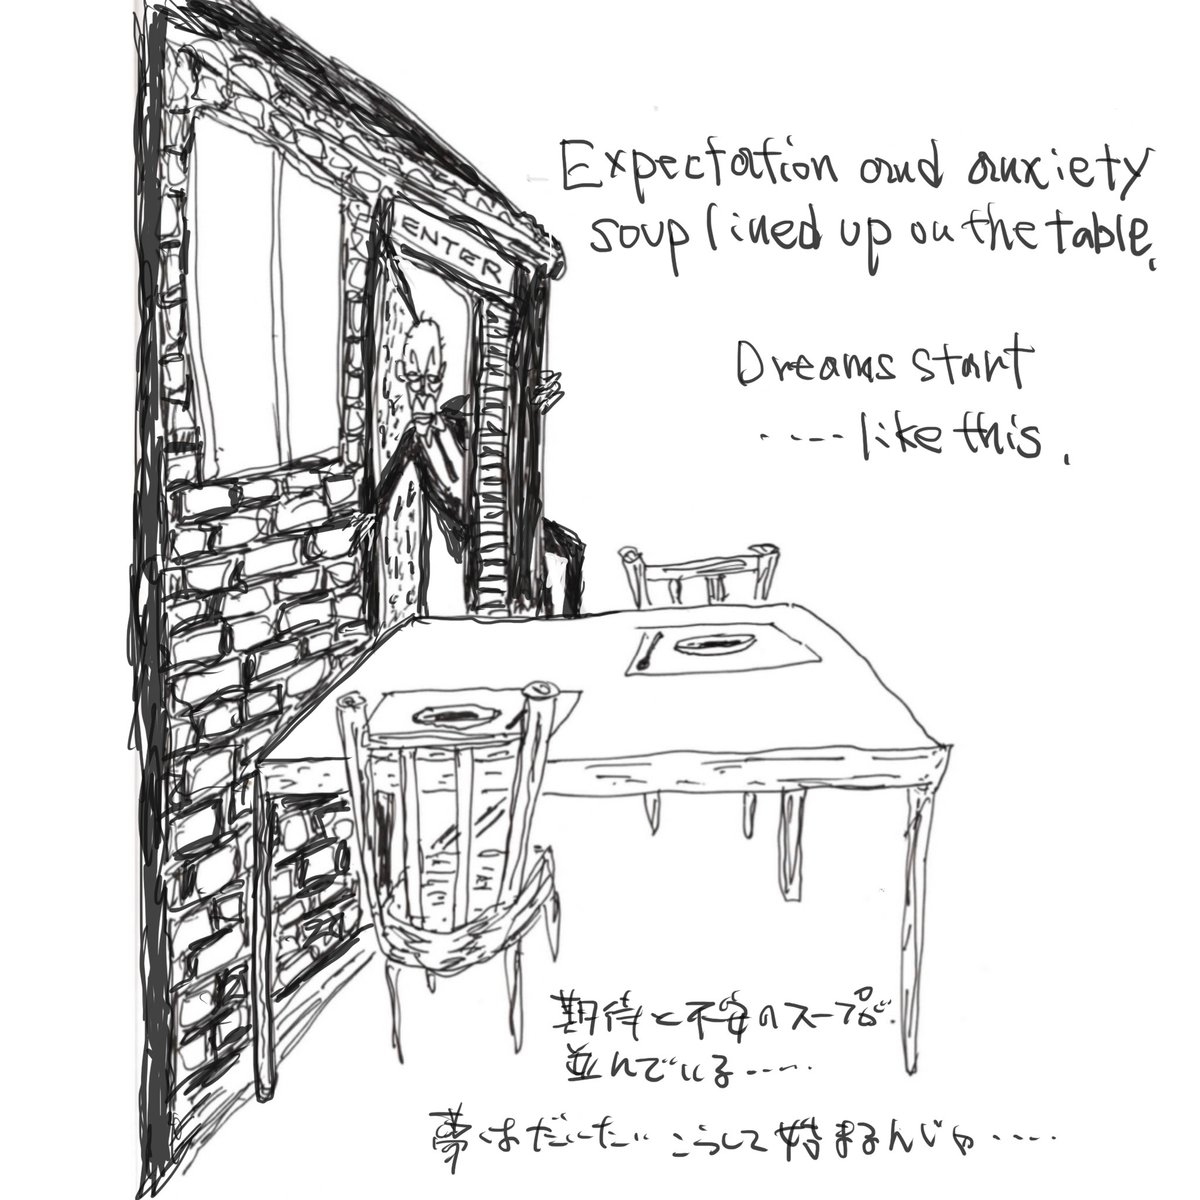 ENTER
Expectation and anxiety
soup lined up on the table.
Dreams start
.... like this.
期待と不安のスープが
並んでいる.....
夢はだいたいこうして始まるんじゃ.....